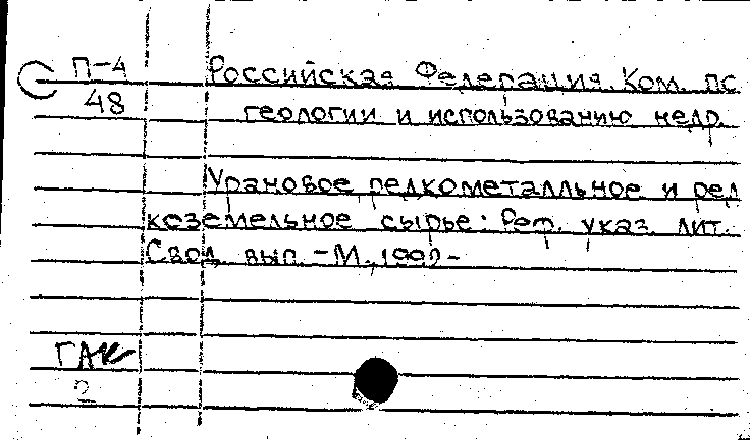 П-4
48
Российская Федерация. Ком. по
геологии и использованию недр.
Урановое редкометалльное и ред
коземельное сырье: Реф. указ. лит.
Свод. вып. - М., 1992-
ГАК
2